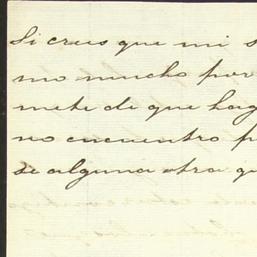 Si crees que mi s
mo mucho por
mete de que hag
no encuentro p
se alguna otra qu